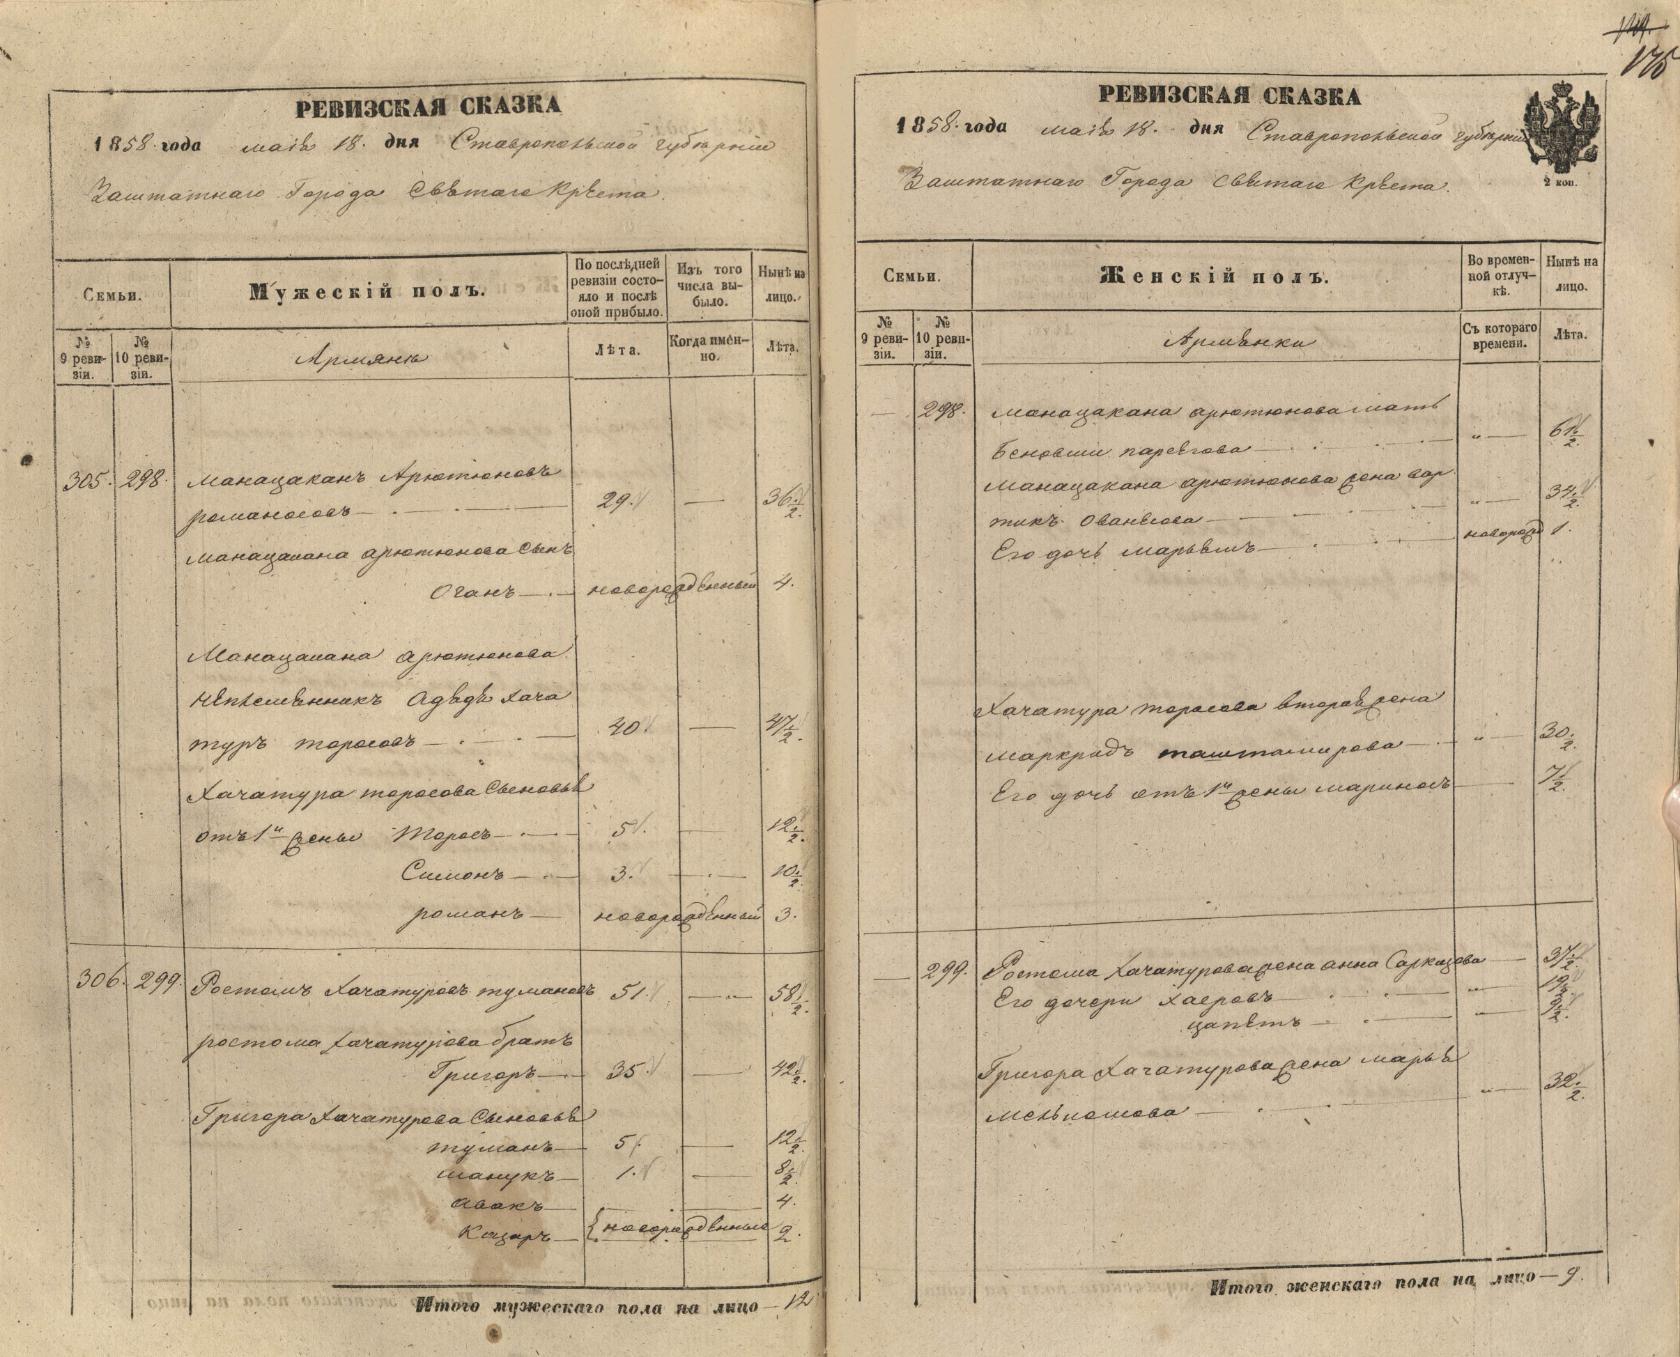 РЕВИЗСКАЯ СКАЗКА
1858. года маія 18. дня Ставропольской губерніи
Заштатнаго Города Святаго Креста.
Семьи.
Мужескій полъ.
По послѣдней ревизіи состояло и послѣ оной прибыло.
Изъ того числа выбыло.
Нынѣ на лицо.
№ 9 ревизіи.
№ 10 ревизіи.
Армяне
Лѣта.
Когда именно.
Лѣта.
305. 298. Манацаканъ Арютюновъ
романосовъ — 29. — 36 1/2.
Манацакана арютюнова сынъ
Оганъ — новорожденный 4.
Манацакана арютюнова
племянникъ Хача
туръ торосовъ — 40. — 47 1/2.
Хачатура торосова сыновья
отъ 1й жены Торосъ — 5. — 12 1/2.
Симонъ — 3. — 10 1/2.
романъ — новорожденный 3.
306. 299. Ростомъ Хачатуровъ тумановъ 51. — 58 1/2.
ростома хачатурова братъ
Григоръ — 35. — 42 1/2.
Григора Хачатурова сыновья
туманъ — 5. — 12 1/2.
манукъ — 1. — 8 1/2
авакъ — 4.
Казаръ — { новорожденные 2.
Итого мужескаго пола на лицо — 12
175
РЕВИЗСКАЯ СКАЗКА
1858. года маія 18. дня Ставропольской губерніи
Заштатнаго Города Святаго Креста.
2 коп.
Семьи.
Женскій полъ.
Во временной отлучкѣ.
Нынѣ на лицо.
№ 9 ревизіи.
№ 10 ревизіи.
Армянки
Съ котораго времени.
Лѣта.
— 298. Манацакана арютюнова мать
паревгова — „ — 61 1/2.
Манацакана арютюнова жена вар
тикъ Ованесова — „ — 34 1/2.
Его дочь марьямъ — новорож 1.
Хачатура торосова вторая жена
маркридъ таштамирова — „ — 30 1/2.
Его дочь отъ 1й жены мариносъ — 7 1/2.
— 299. Ростома Хачатурова жена анна Саркизова — 37 1/2.
Его дочери — „ — 19 1/2.
цапетъ — „ — 9 1/2.
Григора Хачатурова жена марья
— „ — 32 1/2.
Итого женскаго пола на лицо — 9.